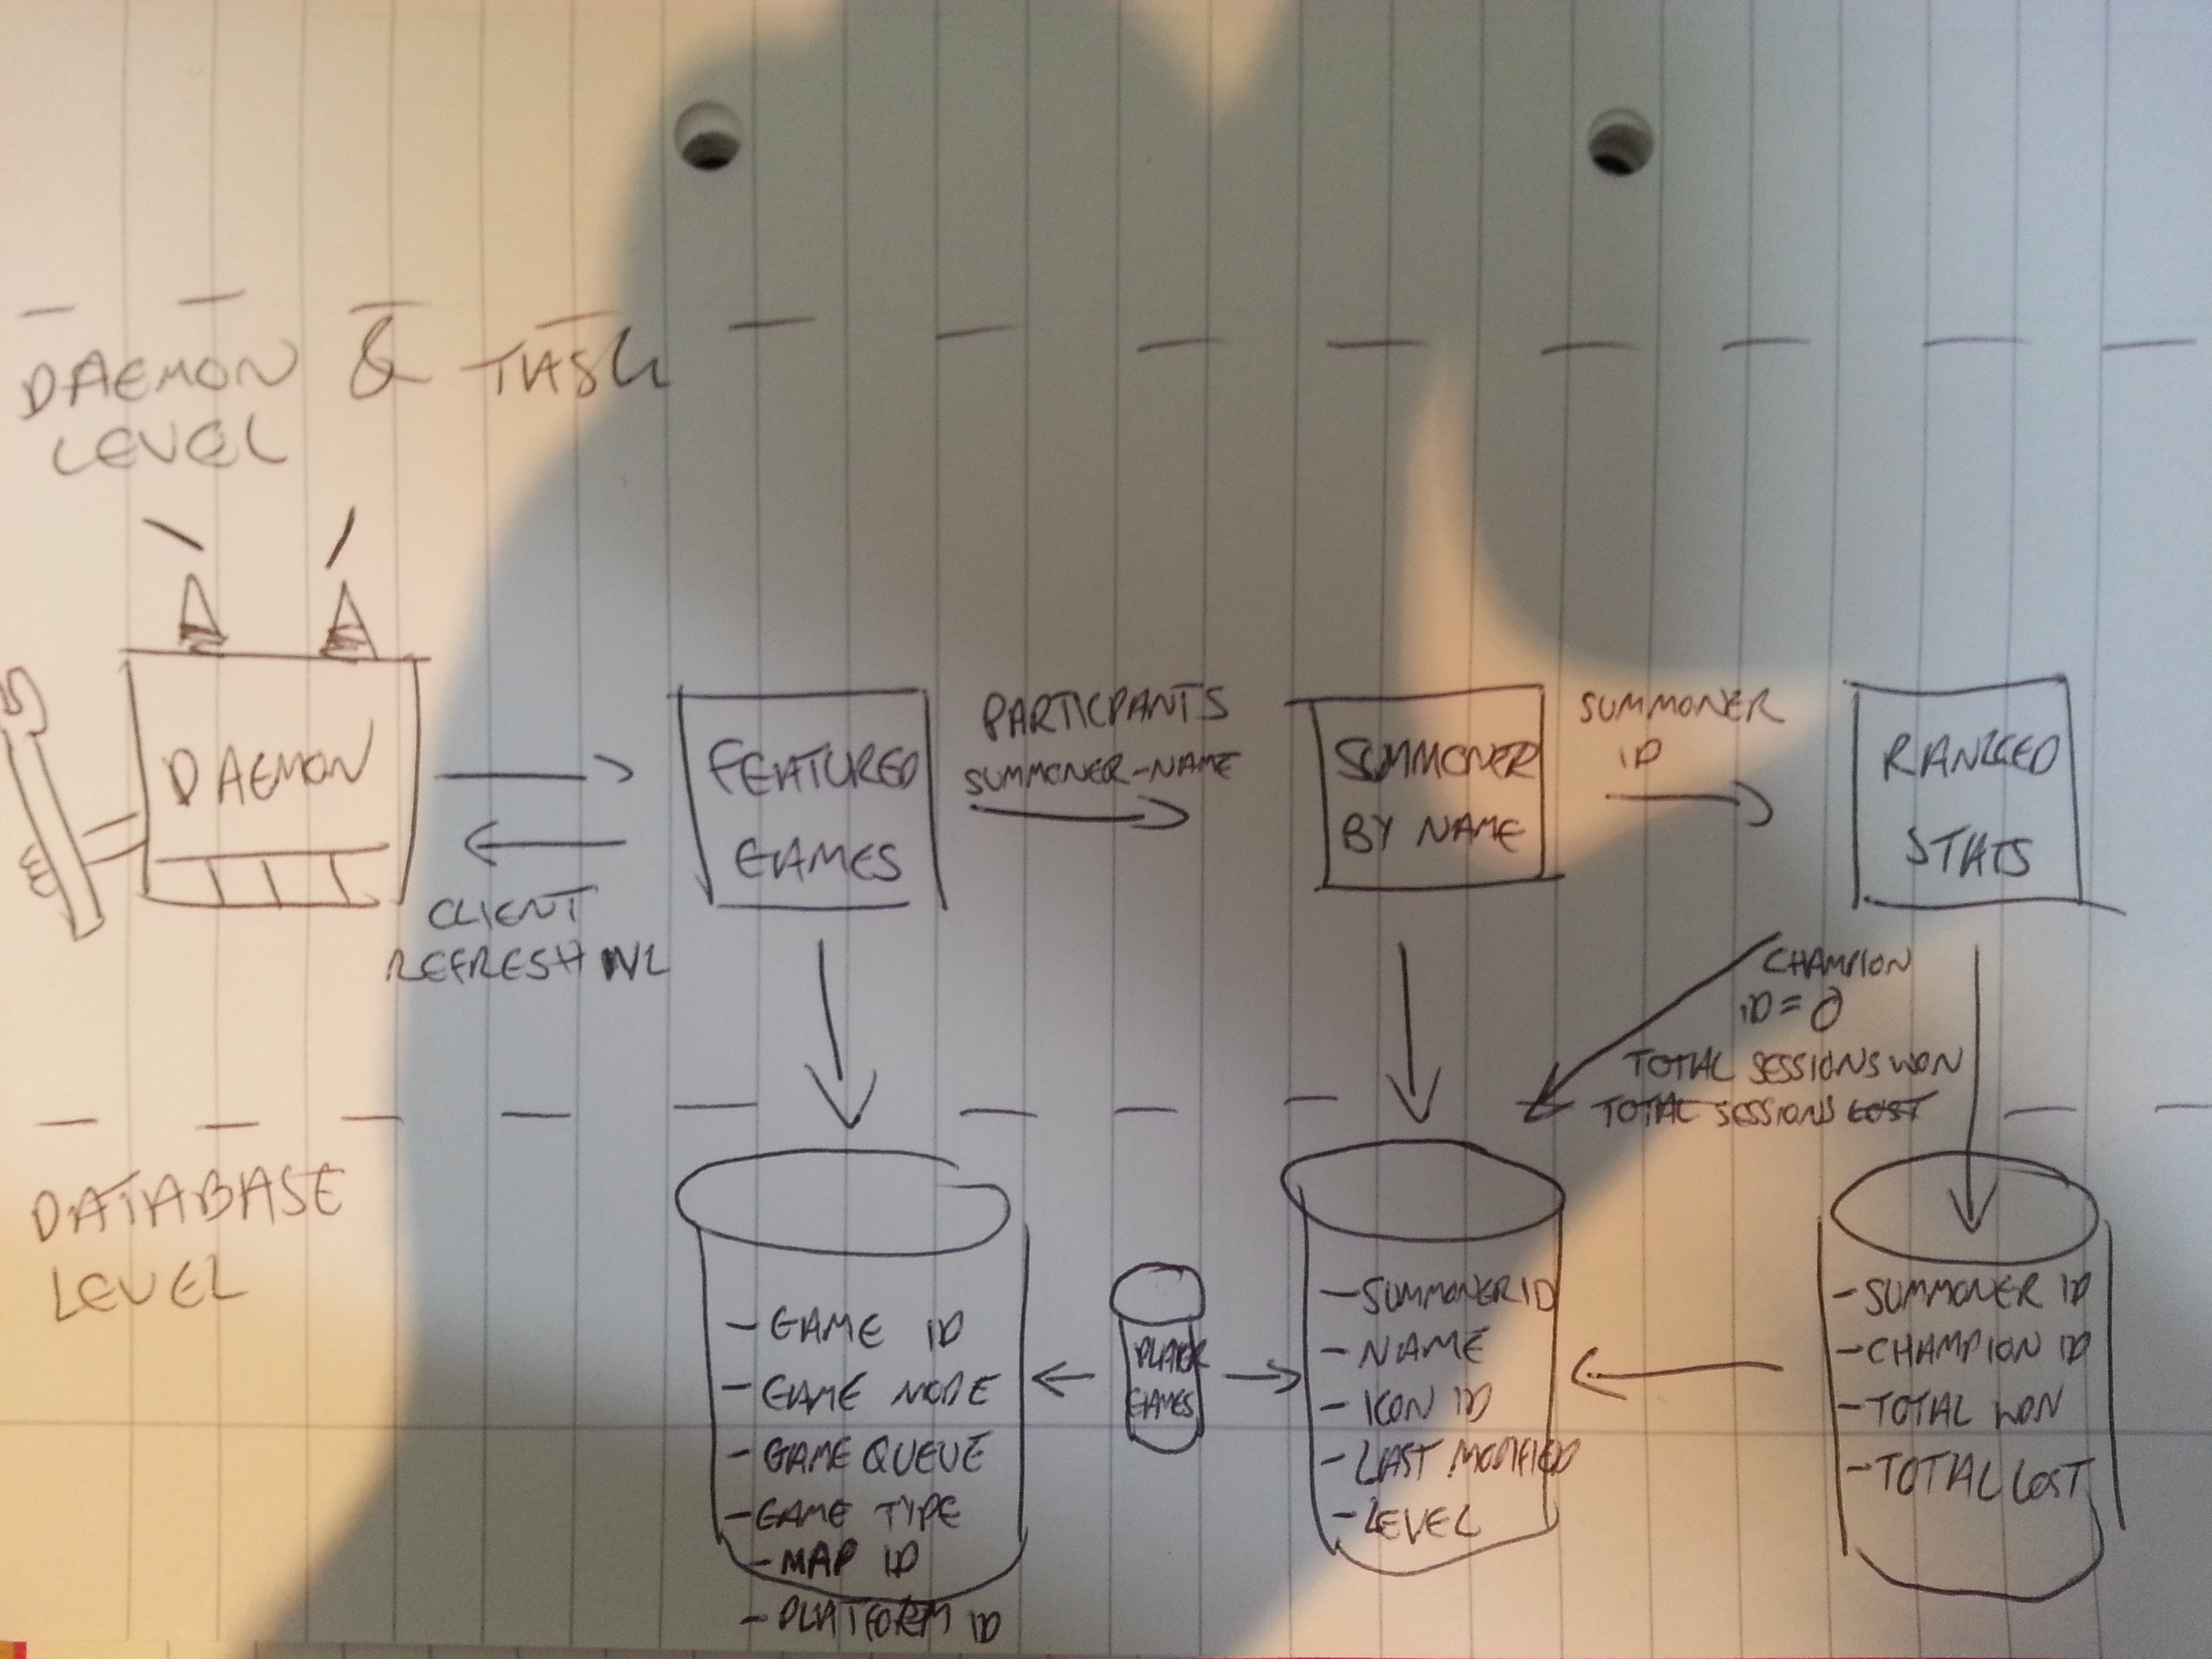 DAEMON & TASK
LEVEL
DAEMON
CLIENT
REFRESH
FEATURED
GAMES
PARTICPANTS
SUMMONER-NAME
SUMMONER
BY NAME
SUMMONER
ID
RANKED
STATS
CHAMPION
ID = 0
TOTAL SESSIONS WON
TOTAL SESSIONS LOST
DATABASE
LEVEL
- GAME ID
- GAME MODE
- GAME QUEUE
- GAME TYPE
- MAP ID
- PLATFORM ID
PLAYER
GAMES
- SUMMONER ID
- NAME
- ICON ID
- LAST MODIFIED
- LEVEL
- SUMMONER ID
- CHAMPION ID
- TOTAL WON
- TOTAL LOST